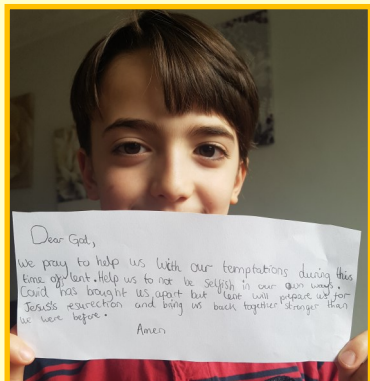 Dear God,
We pray to help us with our temptations during this
time of lent. Help us to not be selfish in our own ways.
Covid has brought us apart but lent will prepare us for
Jesus's resurection and bring us back together stronger than
we were before.
Amen